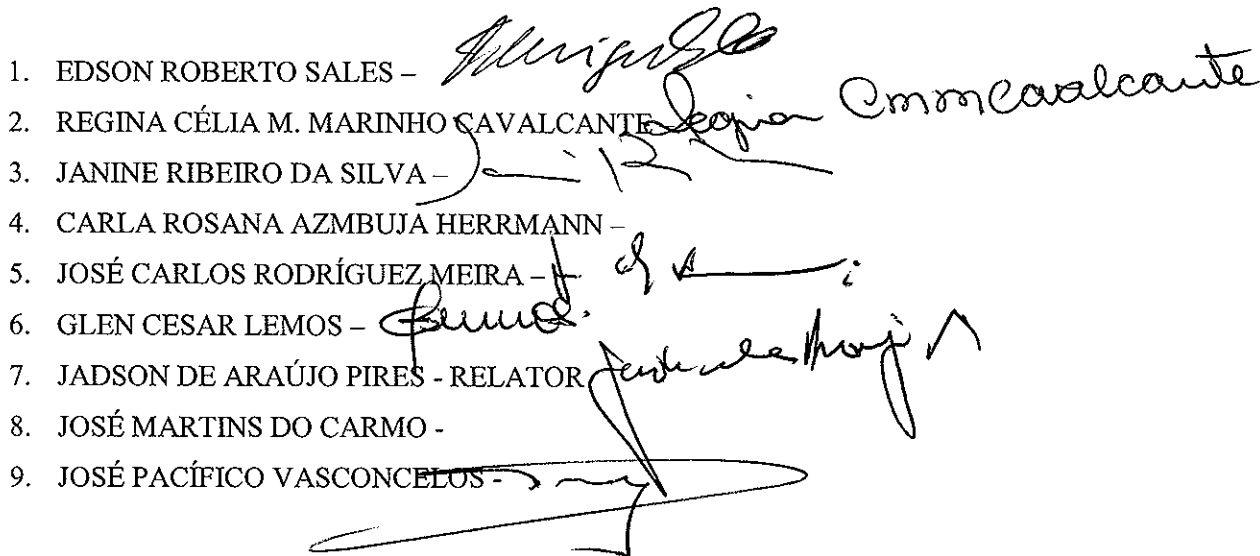 1. EDSON ROBERTO SALES –
2. REGINA CÉLIA M. MARINHO CAVALCANTE Regina Cmmcavalcante
3. JANINE RIBEIRO DA SILVA –
4. CARLA ROSANA AZMBUJA HERRMANN –
5. JOSÉ CARLOS RODRÍGUEZ MEIRA –
6. GLEN CESAR LEMOS –
7. JADSON DE ARAÚJO PIRES - RELATOR
8. JOSÉ MARTINS DO CARMO -
9. JOSÉ PACÍFICO VASCONCELOS -